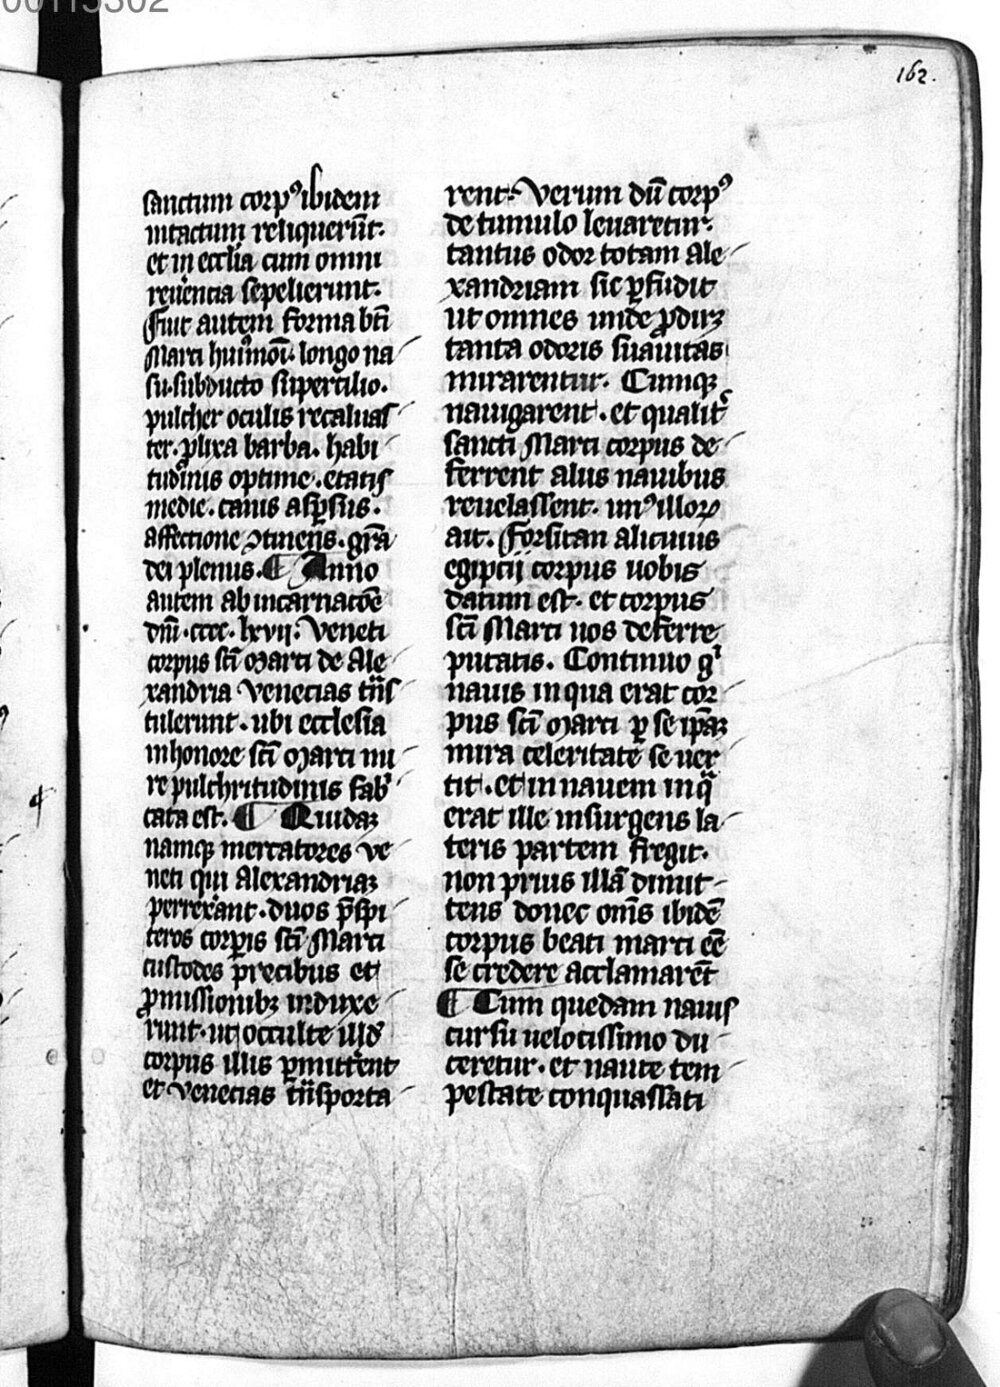 00115302
162.
sanctum corpꝰ ibidem
intactum reliquerūt.
et in eccl̄ia cum omni
reuēncia sepelierunt.
Fuit autem forma bt̄i
Marci huiꝰmōi. longo na
su. subducto supercilio.
pulcher oculis recaluas
ter. ꝓlixa barba. habi
tudinis optime. etatis
medie. canis asꝑsus.
affectione ꝯtinens. gr̄a
dei plenus. ¶ Anno
autem ab incarnacōe
dn̄i .cccc. lxvij. Veneti
corpus sc̄i Marci de Ale
xandria Venecias tn̄s
tulerunt. ubi ecclesia
in honore sc̄i Marci mi
re pulchritudinis fabͥ
cata est. ¶ Quidaꝫ
namqꝫ mercatores ve
neti qui Alexandriaꝫ
perrexant. duos p̄sbi
teros corꝑis sc̄i Marci
custodes precibus et
ꝓmissionibꝫ induxe
runt. ut occulte illd̄
corpus illis ꝑmittent
et Venecias tn̄sporta
rent. Verum dū corpꝰ
de tumulo leuaretur.
tantus odor totam Ale
xandriam sic ꝑfudit
ut omnes unde ꝓdirꝫ
tanta odoris suauitas
mirarentur. Cumqꝫ
nauigarent. et qualit̓
sancti Marci corpus de
ferrent aliis nauibus
reuelassent. unꝰ illoꝝ
ait. Forsitan alicuius
egipcij corpus uobis
datum est. et corpus
sc̄i Marci uos deferre
putatis. Continuo gͥ
nauis in qua erat cor
pus sc̄i Marci ꝑ se ip̄aꝫ
mira celeritate se uer
tit. et in nauem in q̄
erat ille insurgens la
teris partem fregit.
non prius illā dimit
tens donec om̄s ibidē
corpus beati marci eē
se credere acclamarēt
¶ Cum quedam nauis
cursu uelocissimo du
ceretur. et naute tem
pestate conquassati